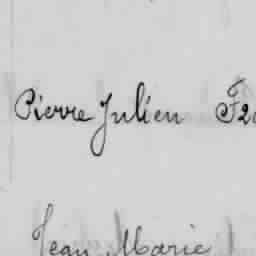 Pierre Julien
Jean Marie